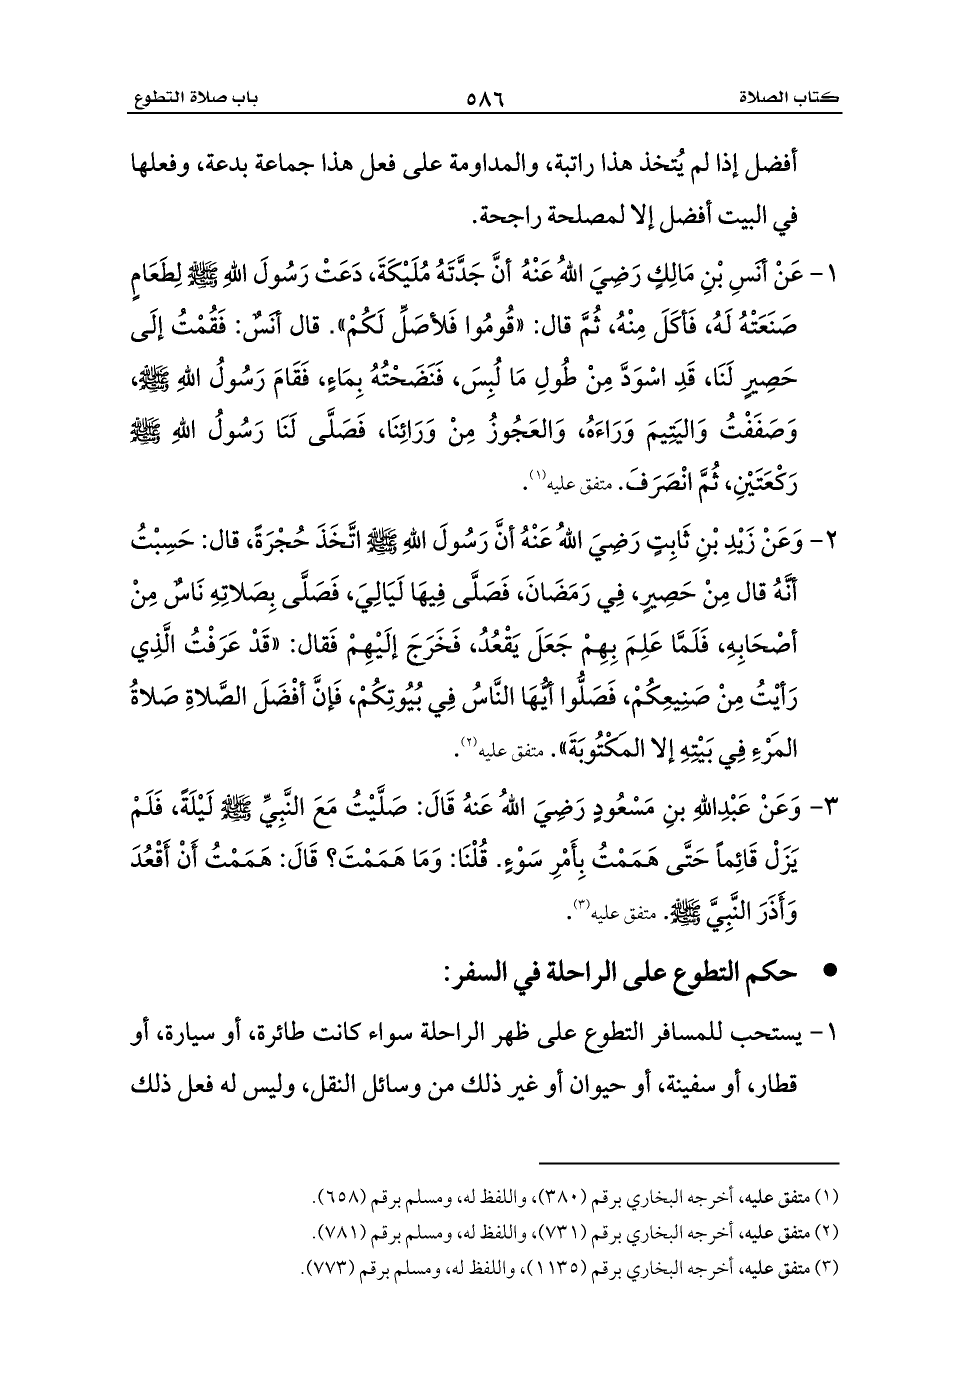 كتاب الصلاة ٥٨٦ باب صلاة التطوع
أفضل إذا لم يُتخذ هذا راتبة، والمداومة على فعل هذا جماعة بدعة، وفعلها
في البيت أفضل إلا لمصلحة راجحة.
١- عَنْ أنَسِ بْنِ مَالِكٍ رَضِيَ اللهُ عَنْهُ أنَّ جَدَّتَهُ مُلَيْكَةَ، دَعَتْ رَسُولَ اللهِ ﷺ لِطَعَامٍ
صَنَعَتْهُ لَهُ، فَأكَلَ مِنْهُ، ثُمَّ قال: «قُومُوا فَلأصَلِّ لَكُمْ». قال أنَسٌ: فَقُمْتُ إلَى
حَصِيرٍ لَنَا، قَدِ اسْوَدَّ مِنْ طُولِ مَا لُبِسَ، فَنَضَحْتُهُ بِمَاءٍ، فَقَامَ رَسُولُ اللهِ ﷺ،
وَصَفَفْتُ وَاليَتِيمَ وَرَاءَهُ، وَالعَجُوزُ مِنْ وَرَائِنَا، فَصَلَّى لَنَا رَسُولُ اللهِ ﷺ
رَكْعَتَيْنِ، ثُمَّ انْصَرَفَ. متفق عليه(١).
٢- وَعَنْ زَيْدِ بْنِ ثَابِتٍ رَضِيَ اللهُ عَنْهُ أنَّ رَسُولَ اللهِ ﷺ اتَّخَذَ حُجْرَةً، قال: حَسِبْتُ
أنَّهُ قال مِنْ حَصِيرٍ، فِي رَمَضَانَ، فَصَلَّى فِيهَا لَيَالِيَ، فَصَلَّى بِصَلاتِهِ نَاسٌ مِنْ
أصْحَابِهِ، فَلَمَّا عَلِمَ بِهِمْ جَعَلَ يَقْعُدُ، فَخَرَجَ إلَيْهِمْ فَقال: «قَدْ عَرَفْتُ الَّذِي
رَأيْتُ مِنْ صَنِيعِكُمْ، فَصَلُّوا أيُّهَا النَّاسُ فِي بُيُوتِكُمْ، فَإنَّ أفْضَلَ الصَّلاةِ صَلاةُ
المَرْءِ فِي بَيْتِهِ إلا المَكْتُوبَةَ». متفق عليه(٢).
٣- وَعَنْ عَبْدِاللهِ بنِ مَسْعُودٍ رَضِيَ اللهُ عَنهُ قَالَ: صَلَّيْتُ مَعَ النَّبِيِّ ﷺ لَيْلَةً، فَلَمْ
يَزَلْ قَائِماً حَتَّى هَمَمْتُ بِأَمْرِ سَوْءٍ. قُلْنَا: وَمَا هَمَمْتَ؟ قَالَ: هَمَمْتُ أَنْ أَقْعُدَ
وَأَذَرَ النَّبِيَّ ﷺ. متفق عليه(٣).
● حكم التطوع على الراحلة في السفر:
١- يستحب للمسافر التطوع على ظهر الراحلة سواء كانت طائرة، أو سيارة، أو
قطار، أو سفينة، أو حيوان أو غير ذلك من وسائل النقل، وليس له فعل ذلك
(١) متفق عليه، أخرجه البخاري برقم (٣٨٠)، واللفظ له، ومسلم برقم (٦٥٨).
(٢) متفق عليه، أخرجه البخاري برقم (٧٣١)، واللفظ له، ومسلم برقم (٧٨١).
(٣) متفق عليه، أخرجه البخاري برقم (١١٣٥)، واللفظ له، ومسلم برقم (٧٧٣).